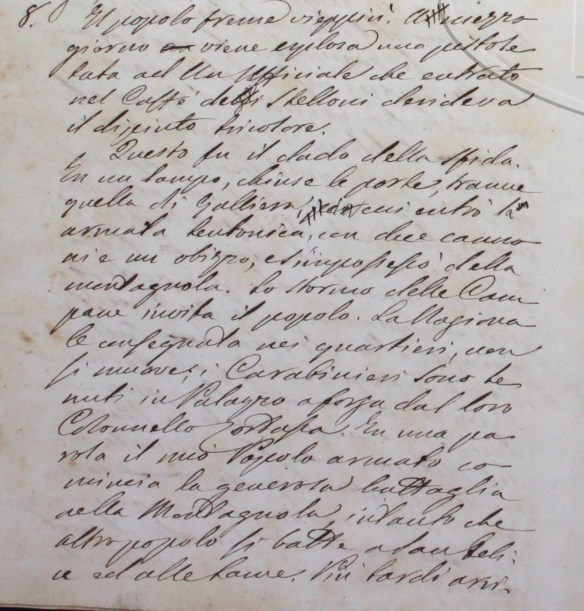 8. Il popolo freme vieppiù. A mezzo
giorno viene esplosa una pistole
tata ad un Uffiziale che entrato
nel Caffé degli Stelloni derideva
il dipinto tricolore.
Questo fu il dado della sfida.
In un lampo, chiuse le porte, tranne
quella di Galliera, cui entrò la
armata teutonica, con due canno
ni e un obizzo, s'impossessò della
montagnola. Lo stormo delle Cam
pane invita il popolo. La Naziona
le consegnata nei quartieri, non
si muove; i Carabinieri sono te
nuti in Palazzo a forza dal loro
Colonnello. In una pa
rola il mio Popolo armato co
mincia la generosa battaglia
nella Montagnola, intanto che
altro popolo si batte a San Feli
ce ed alle Lame. Più tardi arri-